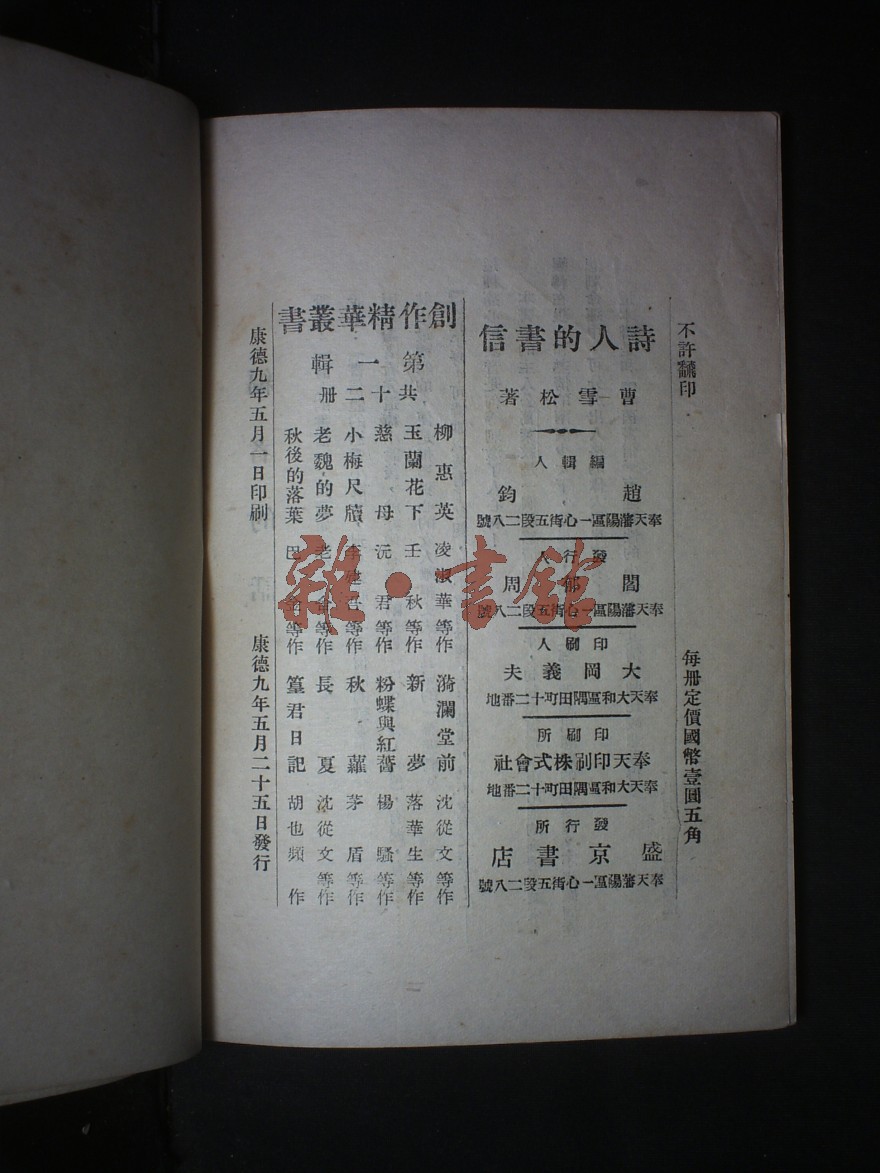 不許翻印
每冊定價國幣壹圓五角
詩人的書信
曹雪松著
編輯人
趙鈞
奉天瀋陽區一心街五段二八號
發行人
閻郁周
奉天瀋陽區一心街五段二八號
印刷人
大岡義夫
奉天大和區隅田町十二番地
印刷所
奉天印刷株式會社
奉天大和區隅田町十二番地
發行所
盛京書店
奉天瀋陽區一心街五段二八號
創作精華叢書
第一輯
共十二冊
柳惠英 凌淑華等作
漪瀾堂前 沈從文等作
玉蘭花下 王秋等作
新夢 落華生等作
慈母 沅君等作
粉蝶與紅薔 楊騷等作
小梅尺牘 李健吾等作
秋蘿 茅盾等作
老魏的夢 老舍等作
長夏 沈從文等作
秋後的落葉 巴金等作
篁君日記 胡也頻作
康德九年五月一日印刷
康德九年五月二十五日發行
雜·書館